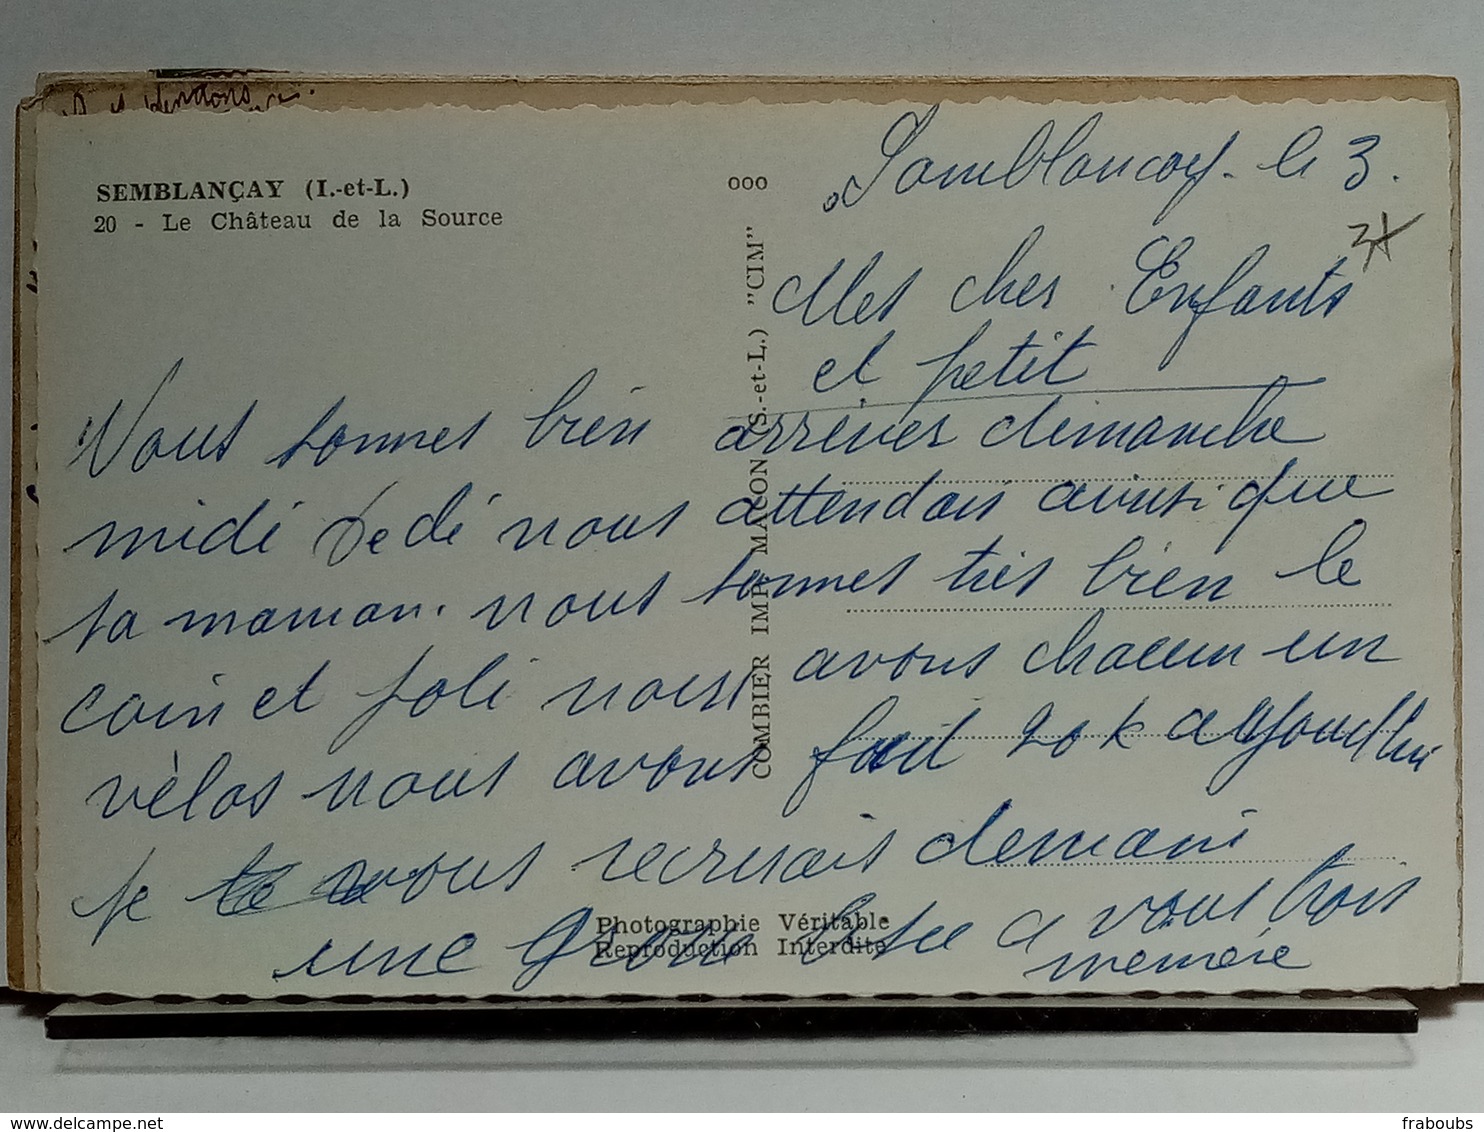 SEMBLANÇAY (I.-et-L.)
20 - Le Château de la Source
ooo
COMBIER IMP. MACON (S.-et-L.) "CIM"
Samblancay. le 3.
Mes cher Enfants
et petit
Nous sommes bien arriver dimanche
midi Dédé nous attendais ainsi que
sa maman. nous sommes tres bien le
coin et joli nous avons chacun un
vèlos nous avons fait 20 k aujourd'hui
je vous recrirais demain
une gross bise a vous trois
memere
Photographie Véritable
Reproduction Interdite
fraboubs